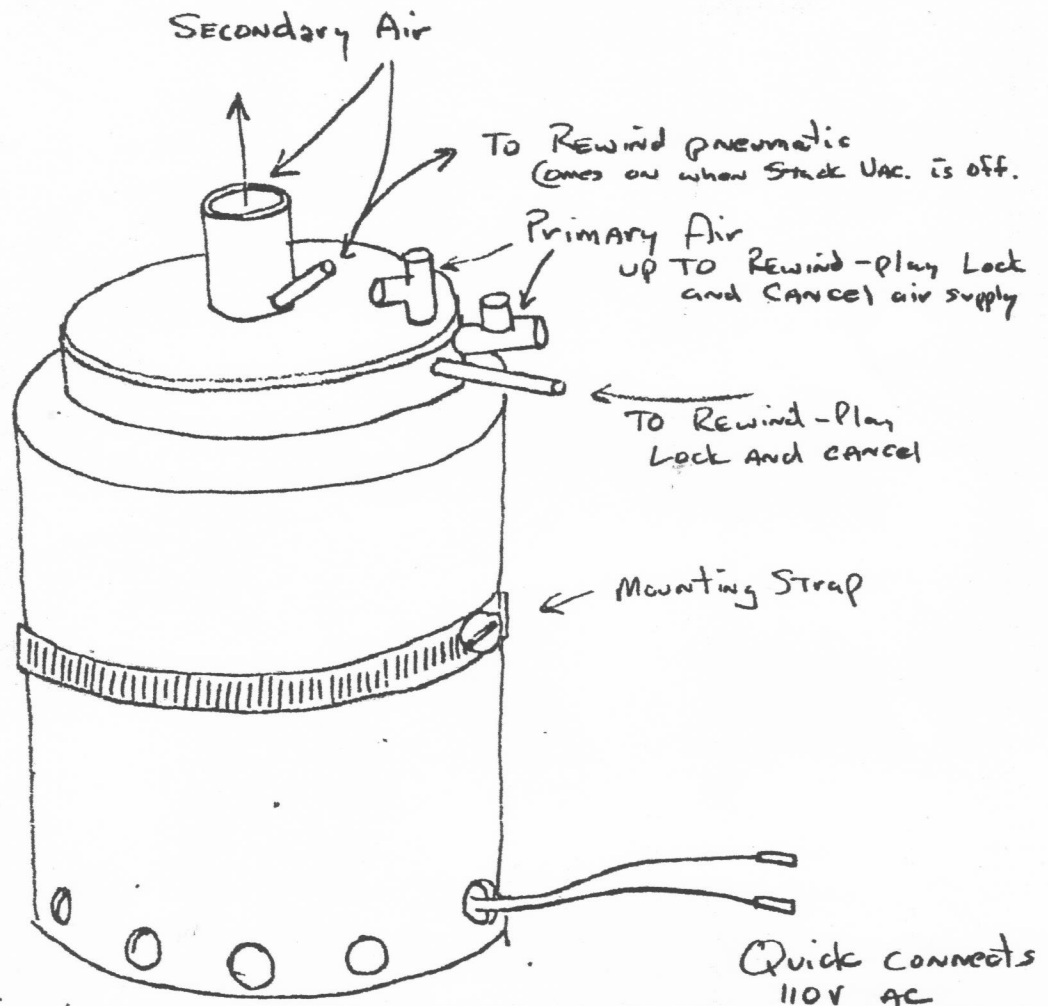 SECONDARY Air
TO REWIND pneumatic
Comes on when Stack VAC. is off.
Primary Air
UP TO REWIND-Play Lock
and CANCEL air supply
TO REWIND-Play
Lock AND CANCEL
Mounting Strap
Quick connects
110V AC